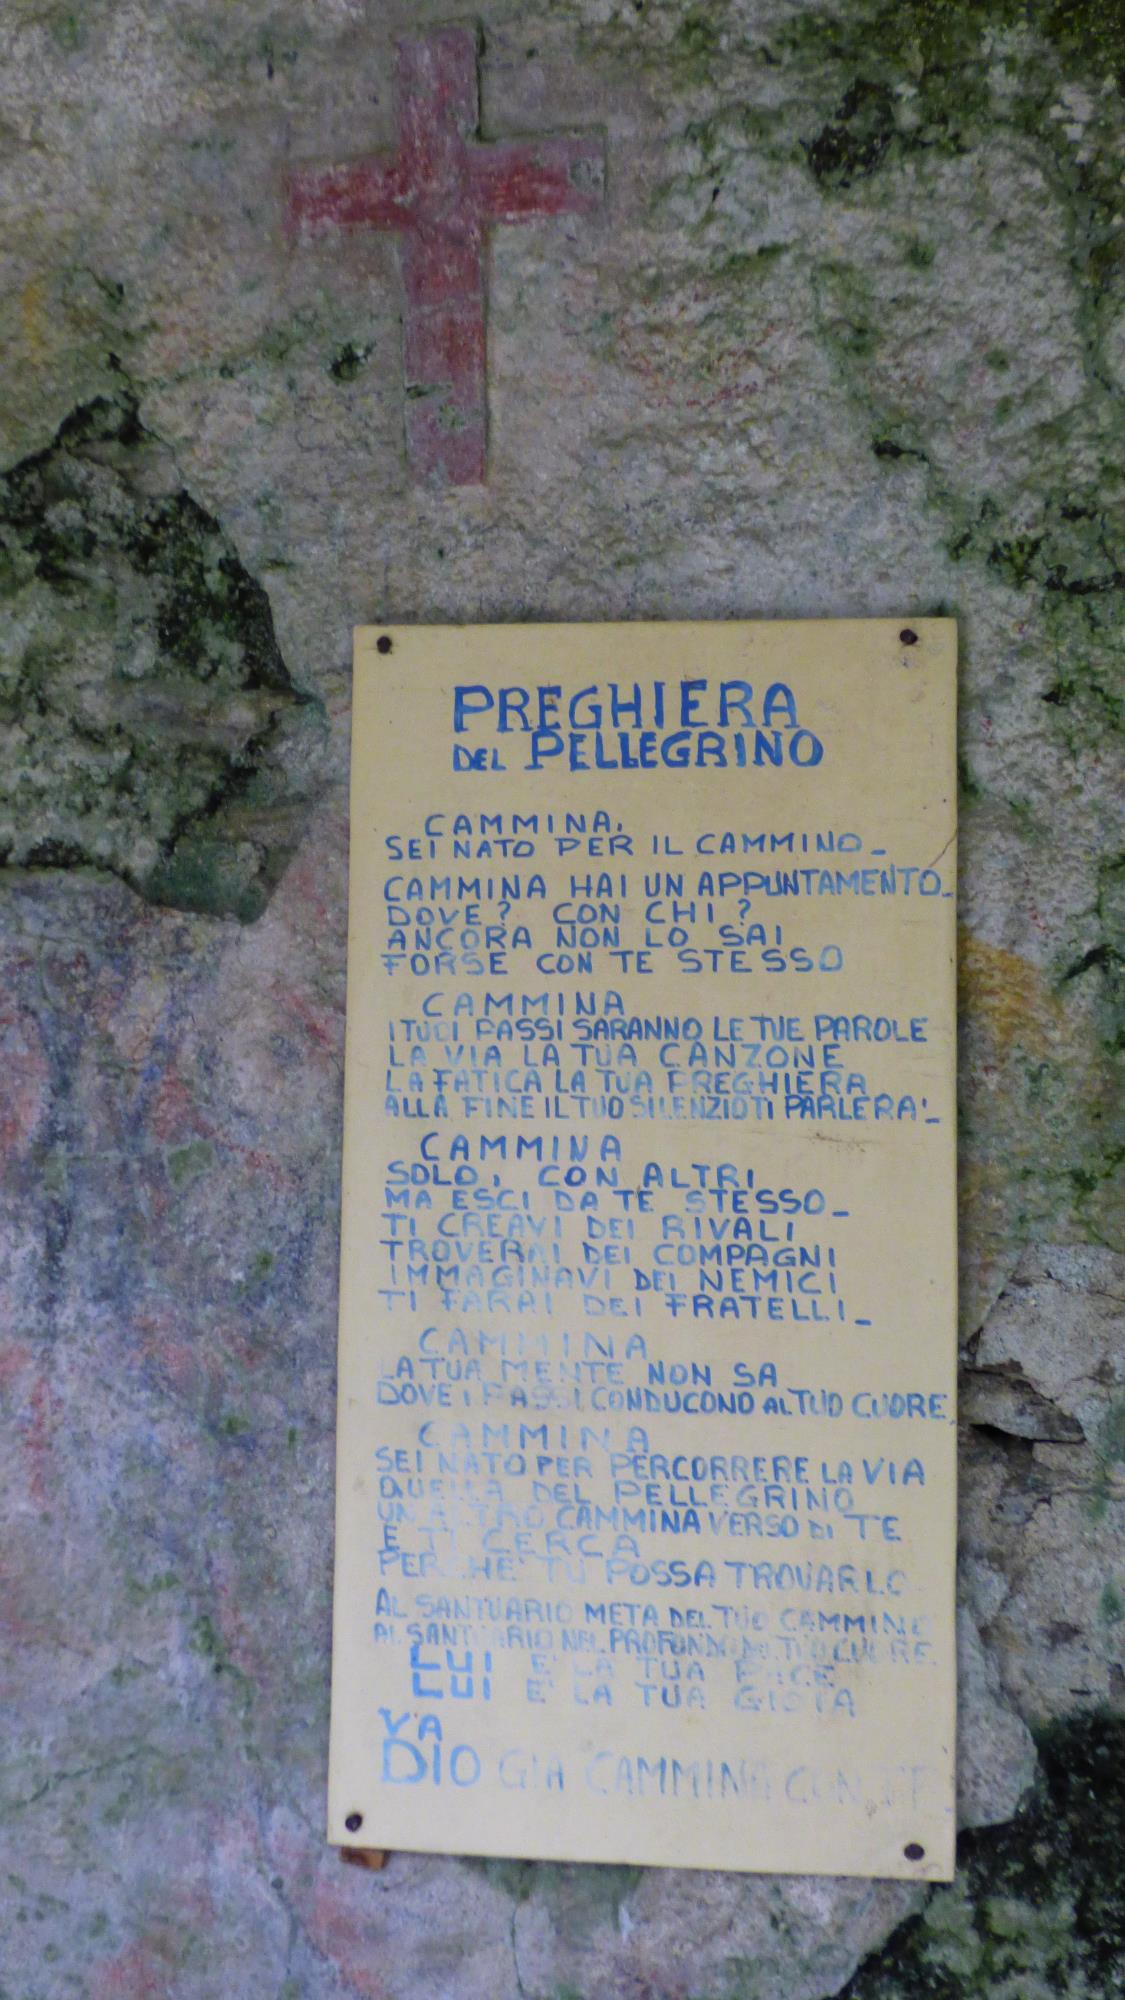 PREGHIERA
DEL PELLEGRINO
CAMMINA.
SEI NATO PER IL CAMMINO_
CAMMINA HAI UN APPUNTAMENTO_
DOVE? CON CHI?
ANCORA NON LO SAI
FORSE CON TE STESSO
CAMMINA
I TUOI PASSI SARANNO LE TUE PAROLE
LA VIA LA TUA CANZONE
LA FATICA LA TUA PREGHIERA
ALLA FINE IL TUO SILENZIO TI PARLERA'_
CAMMINA
SOLO, CON ALTRI
MA ESCI DA TE STESSO_
TI CREAVI DEI RIVALI
TROVERAI DEI COMPAGNI
IMMAGINAVI DEI NEMICI
TI FARAI DEI FRATELLI_
CAMMINA
LA TUA MENTE NON SA
DOVE I PASSI CONDUCONO AL TUO CUORE.
CAMMINA
SEI NATO PER PERCORRERE LA VIA
QUELLA DEL PELLEGRINO
UN ALTRO CAMMINA VERSO DI TE
E TI CERCA
PERCHE' TU POSSA TROVARLO
AL SANTUARIO META DEL TUO CAMMINO
AL SANTUARIO NEL PROFONDO DEL TUO CUORE.
LUI E' LA TUA PACE
LUI E' LA TUA GIOIA
VA
DIO GIA CAMMINA CON TE_